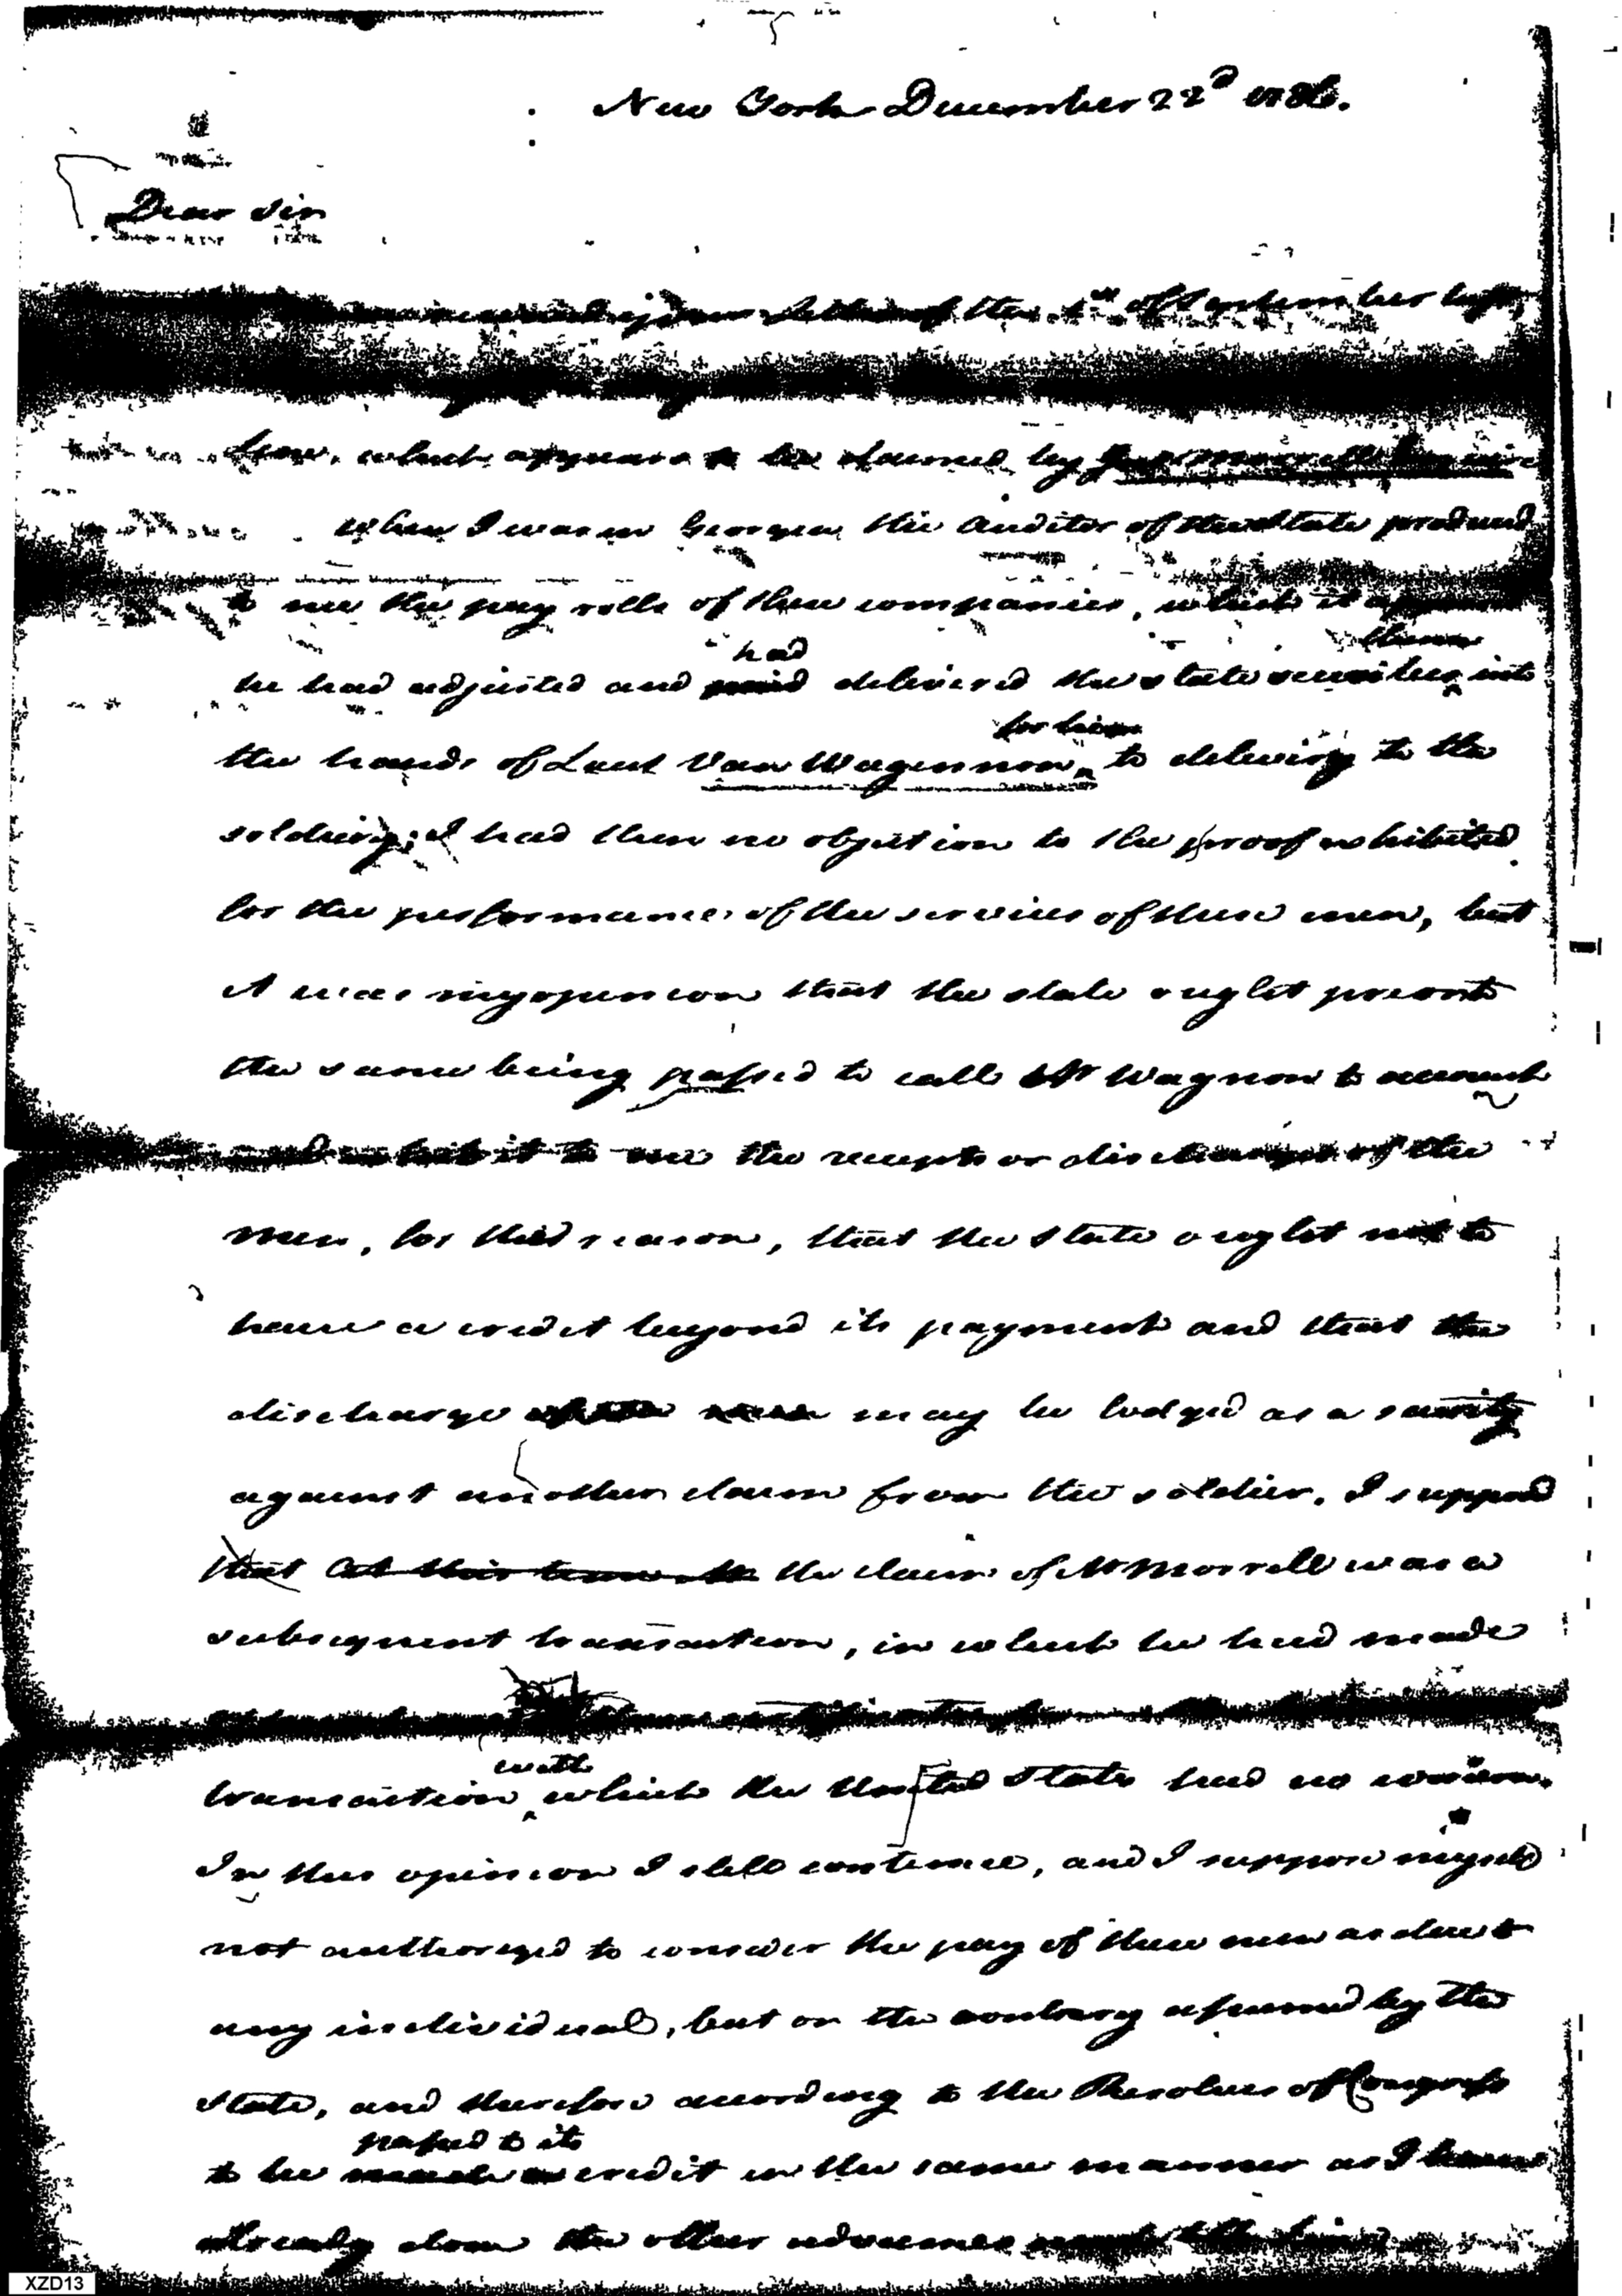 New York December 22d 1786.
Dear Sir
your letter of the 1st of September last,
which appears to be claimed by
When I was in Georgia the Auditor of the State produced
to me the pay rolls of three companies, which it appeared
had them
he had adjusted and paid delivered the state securities into
for him
the hands of Lieut Van Wagennon to delivery to the
soldiery; I had then no objection to the proof exhibited
for the performance of the services of these men, but
it was my opinion that the state ought previous to
the same being passed to call Mr Wagnon to account
and exhibit it to me the receipts or discharges of the
men, for this reason, that the State ought not to
have a credit beyond its payment and that the
discharge may be lodged as a security
against another claim from the soldier. I suppose
that at this time the the claim of Mr Morrell was a
subsequent transaction, in which he had made
with
transaction which the United States had no concern.
In this opinion I still continue, and I suppose myself
not authorized to consider the pay of these men as due to
any individual, but on the contrary assumed by the
State, and therefore according to the Resolves of Congress
passed to its
to be credit in the same manner as I have
already done the other advances
XZD13